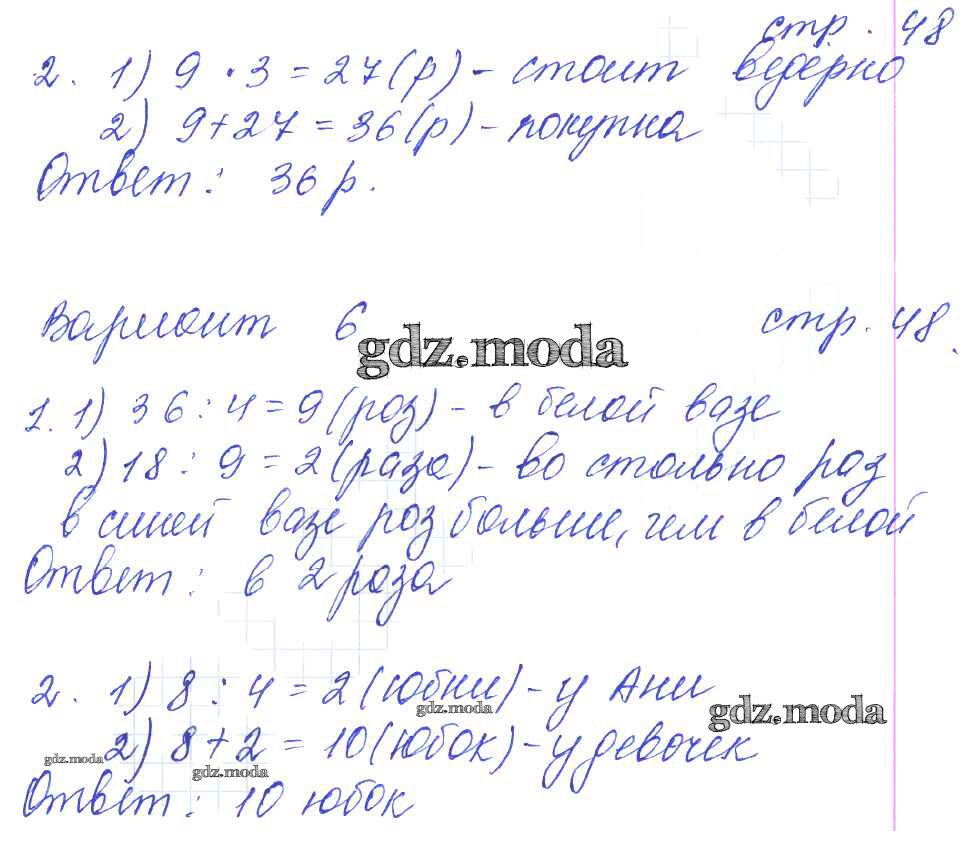 стр. 48
2. 1) 9 · 3 = 27 (р) - стоит ведёрко
2) 9 + 27 = 36 (р) - покупка
Ответ: 36 р.
Вариант 6 стр. 48
gdz.moda
1. 1) 36 : 4 = 9 (роз) - в белой вазе
2) 18 : 9 = 2 (раза) - во столько раз
в синей вазе роз больше, чем в белой
Ответ: в 2 раза
2. 1) 8 : 4 = 2 (юбки) - у Ани
gdz.moda
gdz.moda
2) 8 + 2 = 10 (юбок) - у девочек
gdz.moda
gdz.moda
Ответ: 10 юбок